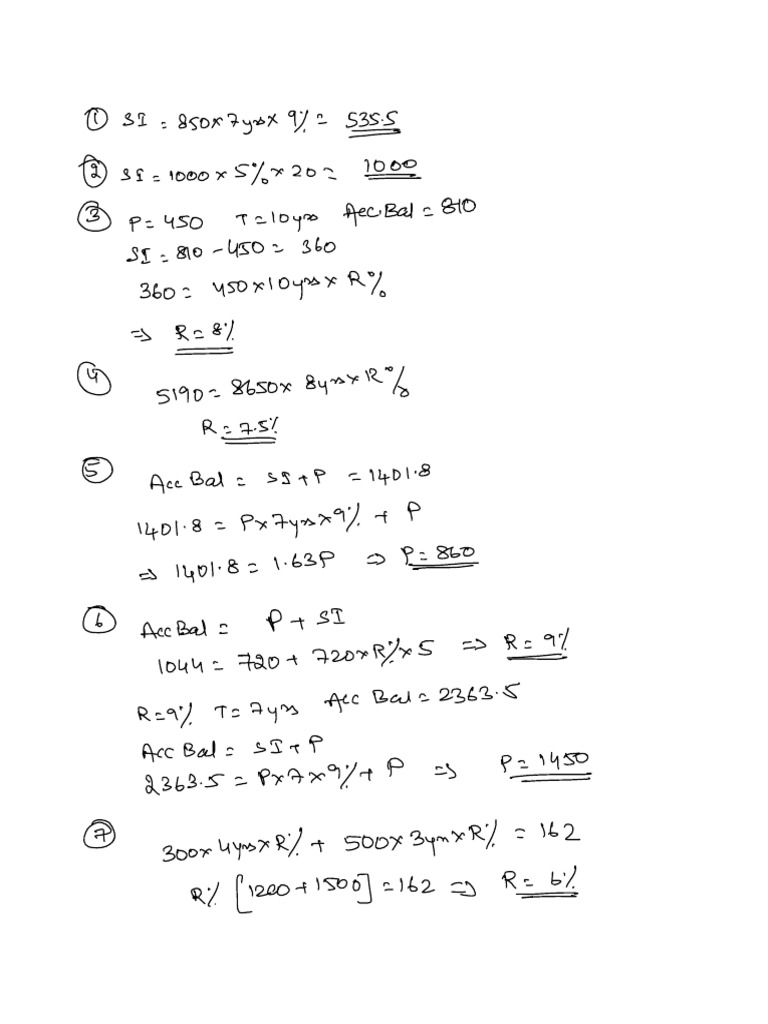 ① SI = 850x7yrsx 9% = 535.5
② SI = 1000 x 5% x 20 = 1000
③ P = 450 T = 10yrs Acc Bal = 810
SI = 810 - 450 = 360
360 = 450x10yrsx R%
=> R = 8%
④
5190 = 8650x 8yrsxR%
R = 7.5%
⑤ Acc Bal = SI+P = 1401.8
1401.8 = Px7yrsx9% + P
=> 1401.8 = 1.63P => P = 860
⑥ Acc Bal = P + SI
1044 = 720 + 720xR%x5 => R = 9%
R = 9% T = 7yrs Acc Bal = 2363.5
Acc Bal = SI+P
2363.5 = Px7x9%+ P => P = 1450
⑦
300x4yrsxR% + 500x3yrsxR% = 162
R% [1200+1500] = 162 => R = 6%